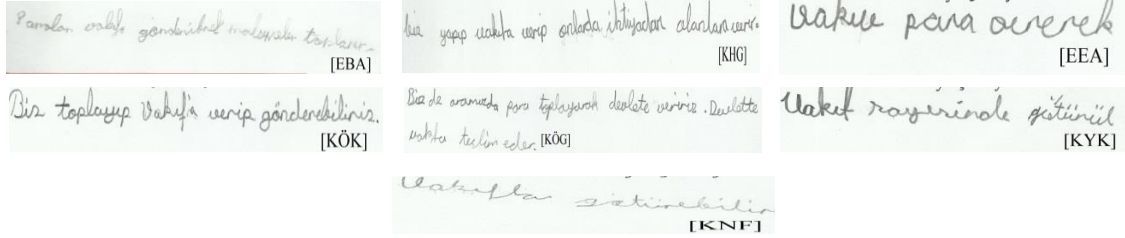 vakıfa gönderilmek
[EBA]
yapıp vakıfa verip onlarda ihtiyacları olanlara verir.
[KHG]
vakıfa para vererek
[EEA]
Biz toplayıp Vakıf'a verip gönderebiliriz.
[KÖK]
Biz de aramızda para toplayarak devlete veririz. Devlette
vakfa teslim eder. [KÖG]
Vakıf sayesinde götürül
[KYK]
Vakıfla götürebilir
[KNF]